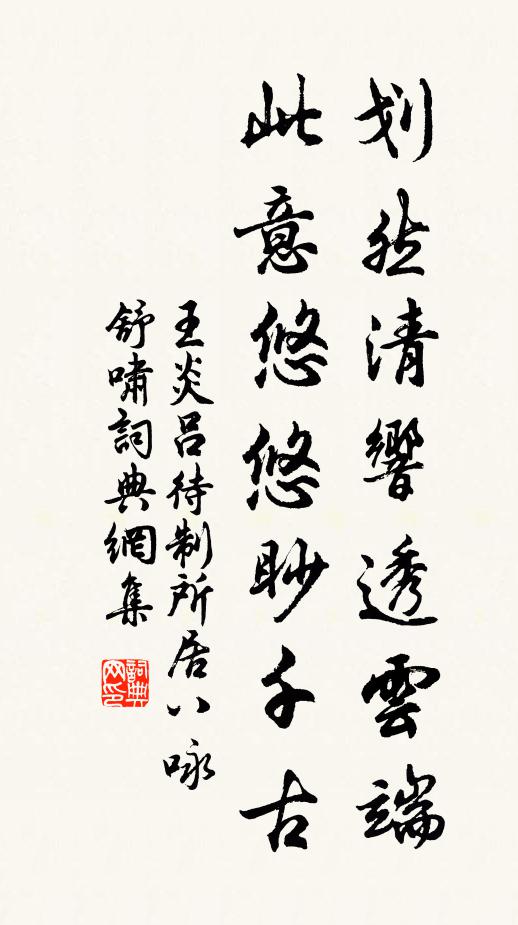 划然清響透雲端
此意悠悠眇千古
王炎呂待制所居八咏
舒嘯詞典網集
詞典網印